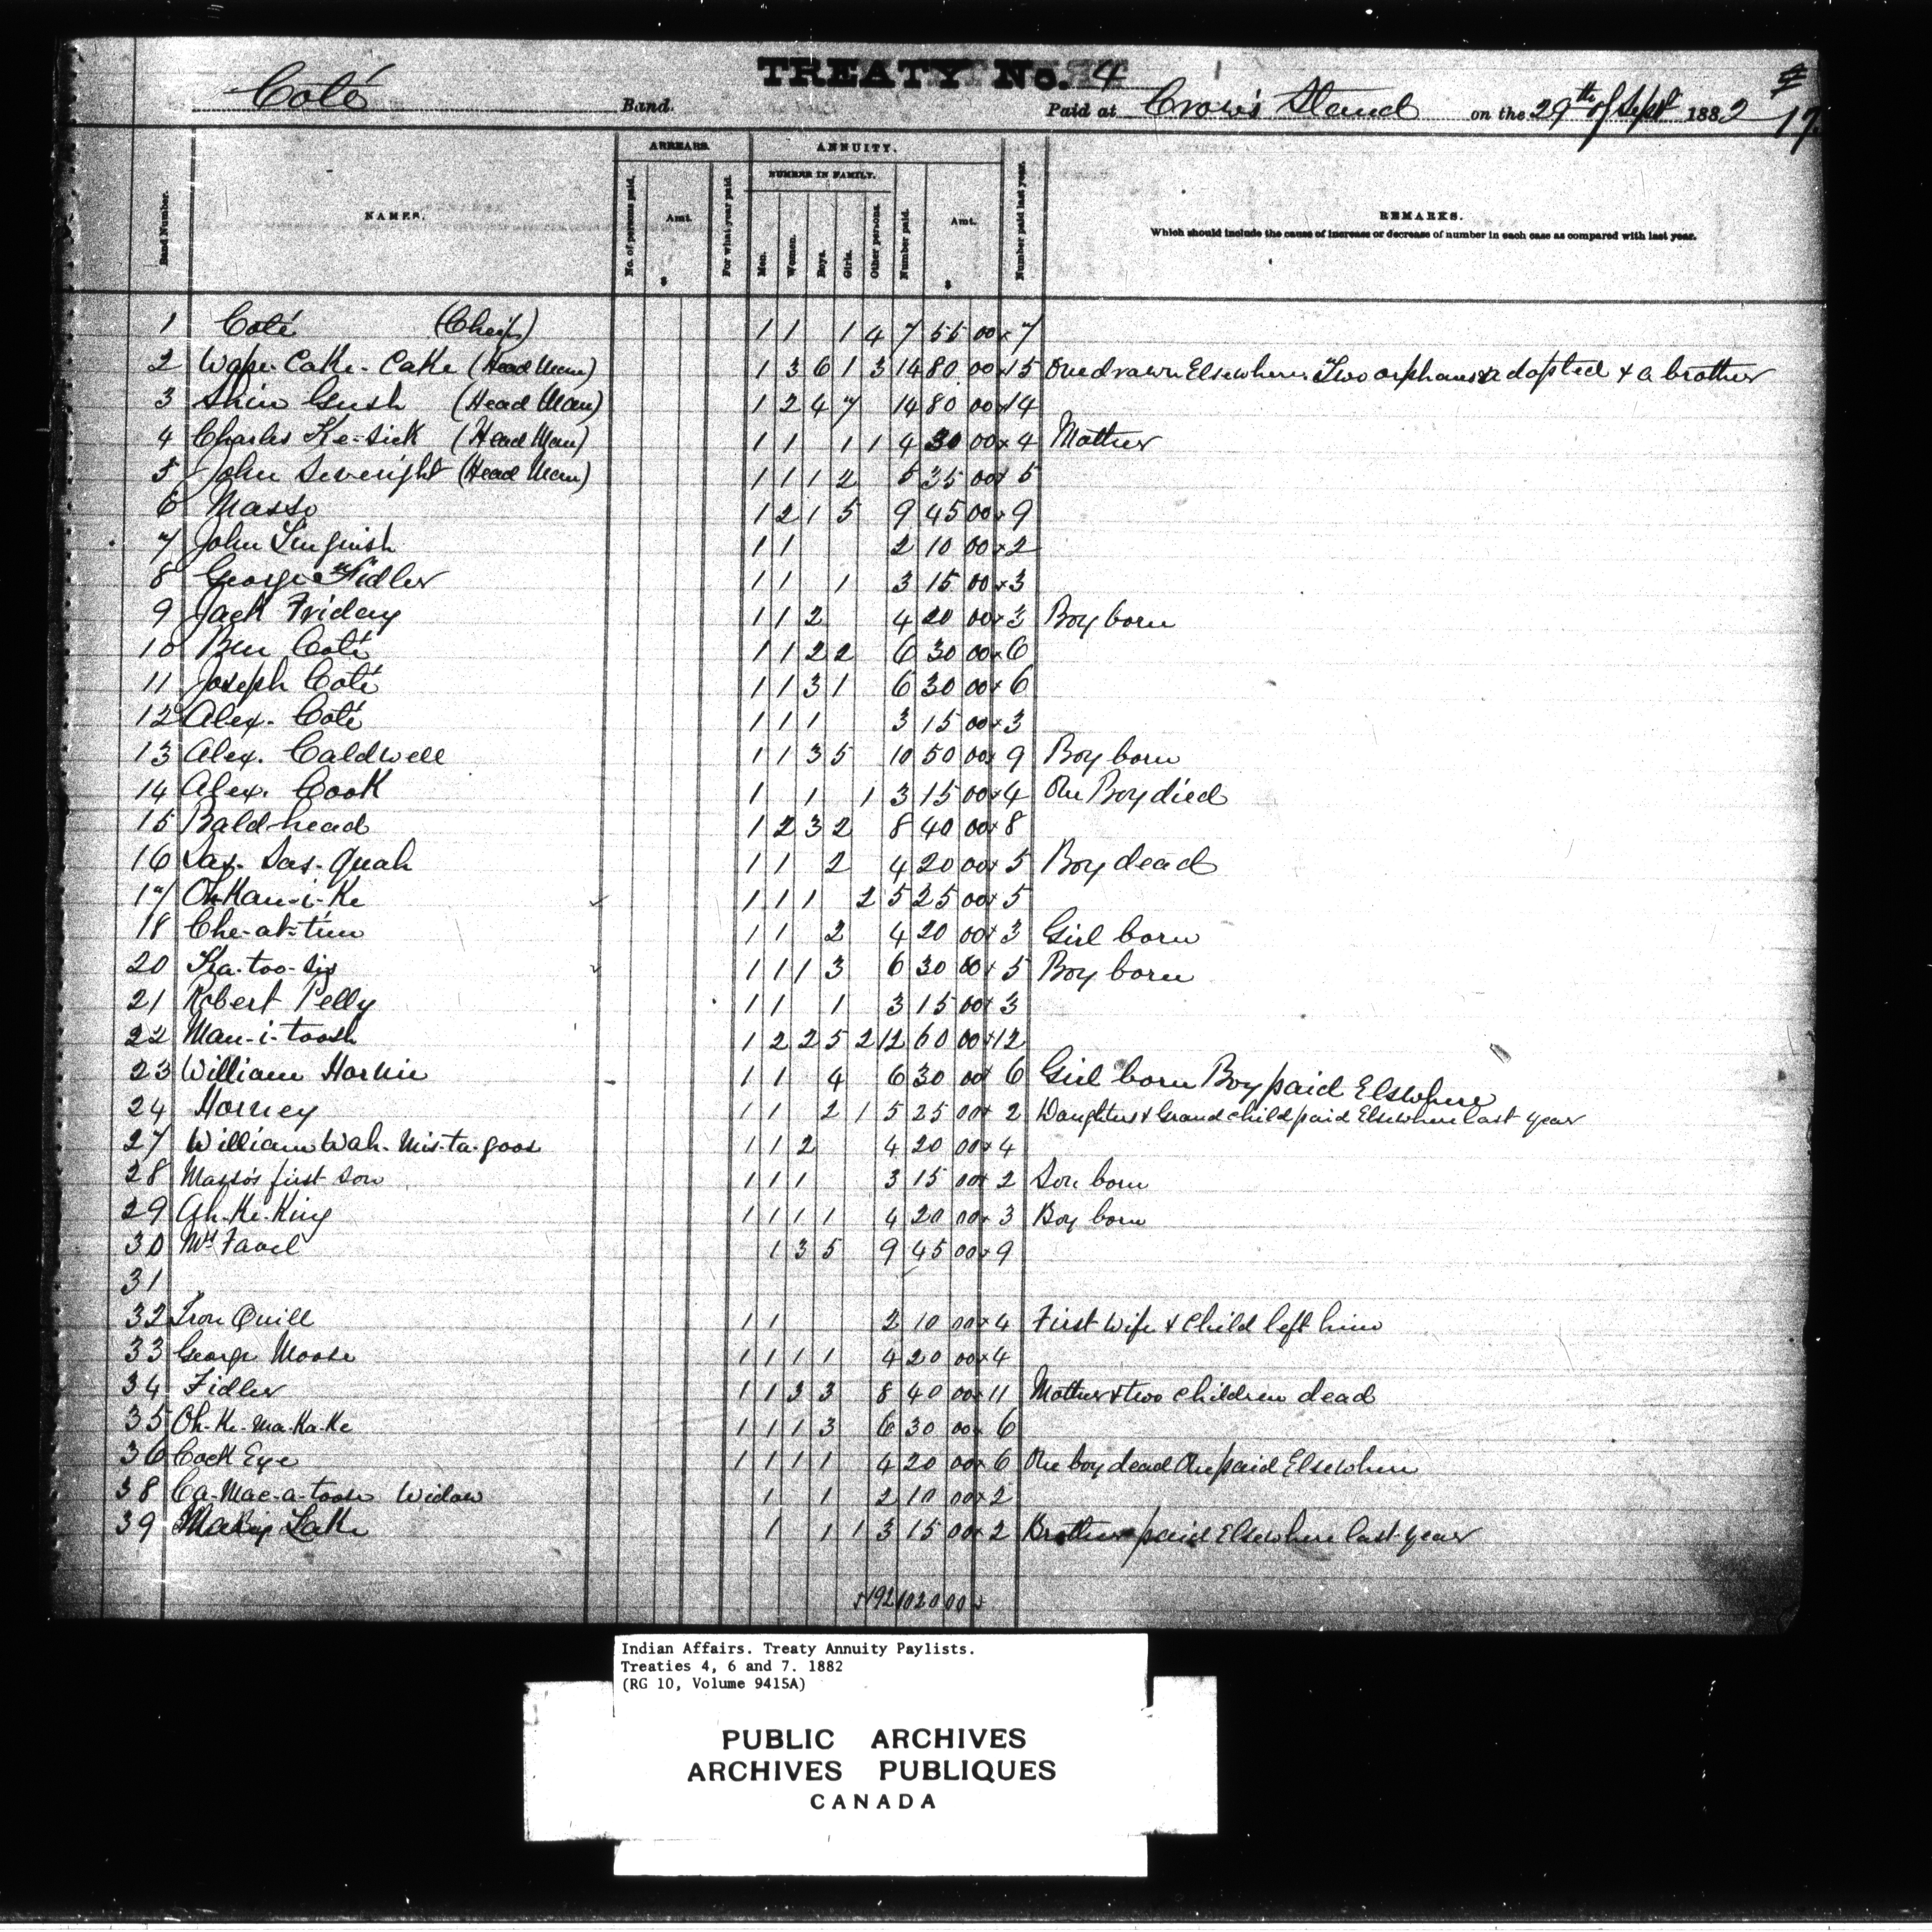 TREATY No. 4
Coté Band. Paid at Crow's Stand on the 29th of Sept 1882 17
Band Number. NAMES. ARREARS. No. of persons paid. Amt. $ For what year paid. ANNUITY. NUMBER IN FAMILY. Men. Women. Boys. Girls. Other persons. Number paid. Amt. $ Number paid last year. REMARKS.
Which should include the cause of increase or decrease of number in each case as compared with last year.
1 Coté (Cheif) 1 1 1 4 7 55 00 x 7
2 Wape-Cake-Cake (Head Man) 1 3 6 1 3 14 80 00 x 15 One drawn Elsewhere Two orphans adopted & a brother
3 Shin Gush (Head Man) 1 2 4 7 14 80 00 x 14
4 Charles Ke-sick (Head Man) 1 1 1 1 4 30 00 x 4 Mother
5 John Severight (Head Man) 1 1 1 2 5 35 00 x 5
6 Masso 1 2 1 5 9 45 00 x 9
7 John 1 1 2 10 00 x 2
8 George Fidler 1 1 1 3 15 00 x 3
9 Jack Friday 1 1 2 4 20 00 x 3 Boy born
10 Ben Coté 1 1 2 2 6 30 00 x 6
11 Joseph Coté 1 1 3 1 6 30 00 x 6
12 Alex. Coté 1 1 1 3 15 00 x 3
13 Alex. Caldwell 1 1 3 5 10 50 00 x 9 Boy born
14 Alex. Cook 1 1 1 3 15 00 x 4 One Boy died
15 Bald-head 1 2 3 2 8 40 00 x 8
16 Sas-Sas-quah 1 1 2 4 20 00 x 5 Boy dead
17 Oh-Kan-i-Ke 1 1 1 2 5 25 00 x 5
18 Che-at-tim 1 1 2 4 20 00 x 3 Girl born
20 Ka-too-sis 1 1 1 3 6 30 00 x 5 Boy born
21 Robert Pelly 1 1 1 3 15 00 x 3
22 Man-i-toosh 1 2 2 5 2 12 60 00 x 12
23 William Hornie 1 1 4 6 30 00 x 6 Girl born Boy paid Elsewhere
24 Horney 1 1 2 1 5 25 00 x 2 Daughter & Grand child paid Elsewhere last year
27 William Wah-Mis-ta-goos 1 1 2 4 20 00 x 4
28 Masso's first Son 1 1 1 3 15 00 x 2 Son born
29 Ah-Ke-King 1 1 1 1 4 20 00 x 3 Boy born
30 Mrs Favel 1 3 5 9 45 00 x 9
31
32 Iron Quill 1 1 2 10 00 x 4 First Wife & Child left him
33 George Moose 1 1 1 1 4 20 00 x 4
34 Fidler 1 1 3 3 8 40 00 x 11 Mother & two children dead
35 Oh-Ke-Ma-Ka-Ke 1 1 1 3 6 30 00 x 6
36 Cock Eye 1 1 1 1 4 20 00 x 6 One boy dead One paid Elsewhere
38 Ca-Mac-a-toose Widow 1 1 2 10 00 x 2
39 Lake 1 1 1 3 15 00 x 2 Brother paid Elsewhere last year
x192 1020 00 x
Indian Affairs. Treaty Annuity Paylists.
Treaties 4, 6 and 7. 1882
(RG 10, Volume 9415A)
PUBLIC ARCHIVES
ARCHIVES PUBLIQUES
CANADA